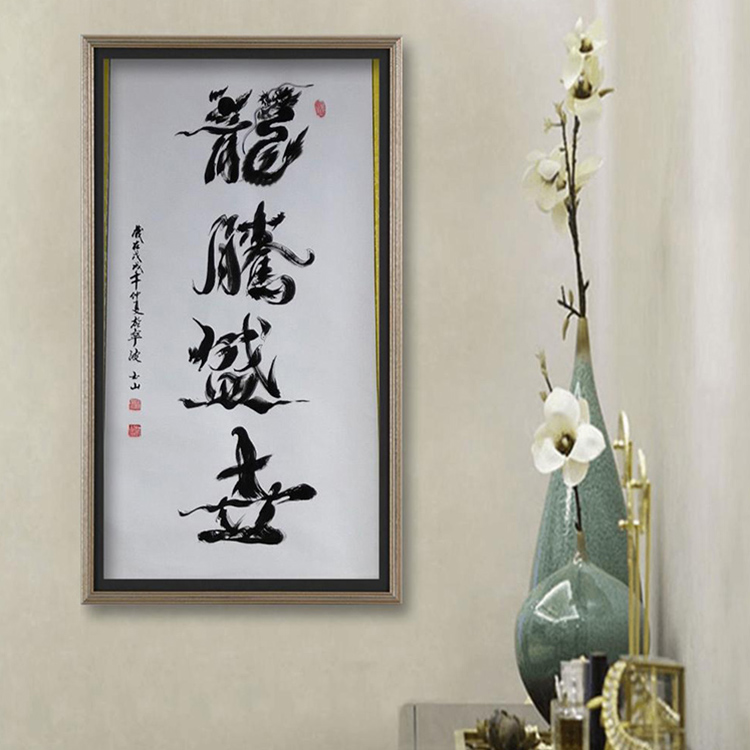 龍騰盛世
歲在戊戌年仲夏於寧波